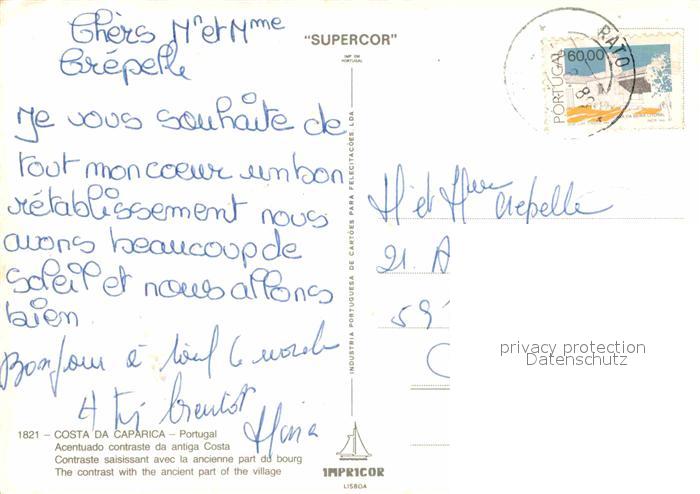 Chèrs Mr et Mme
Crépelle
Je vous souhaite de
tout mon coeur un bon
rétablissement nous
avons beaucoup de
soleil et nous allons
bien
Bonjour à tout le monde
A bientôt
1821 – COSTA DA CAPARICA – Portugal
Acentuado contraste da antiga Costa
Contraste saisissant avec la ancienne part du bourg
The contrast with the ancient part of the village
"SUPERCOR"
IMP EM
PORTUGAL
INDUSTRIA PORTUGUESA DE CARTÕES PARA FELICITAÇÕES LDA.
IMPRICOR
LISBOA
RATO
PORTUGAL
60,00
M et Mme Crepelle
21. A
59
C
privacy protection
Datenschutz